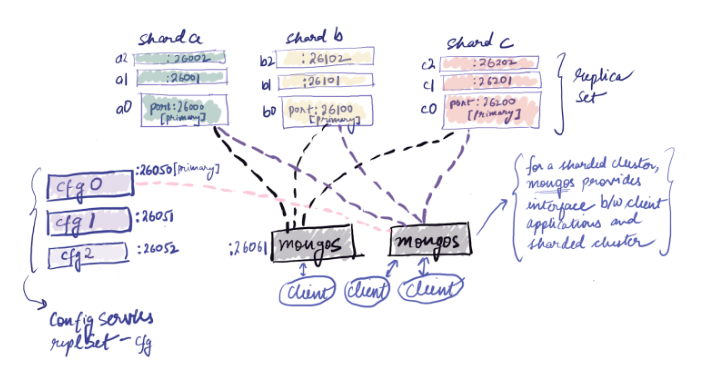 shard a
a2 :26002
a1 :26001
a0 port:26000
[primary]
shard b
b2 :26102
b1 :26101
b0 port:26100
[primary]
shard c
c2 :26202
c1 :26201
c0 port:26200
[primary]
replica
set
cfg 0 :26050[primary]
cfg 1 :26051
cfg 2 :26052
config servers
replset - cfg
:26061 mongos
mongos
client
client
client
for a sharded cluster,
mongos provides
interface b/w client
applications and
sharded cluster